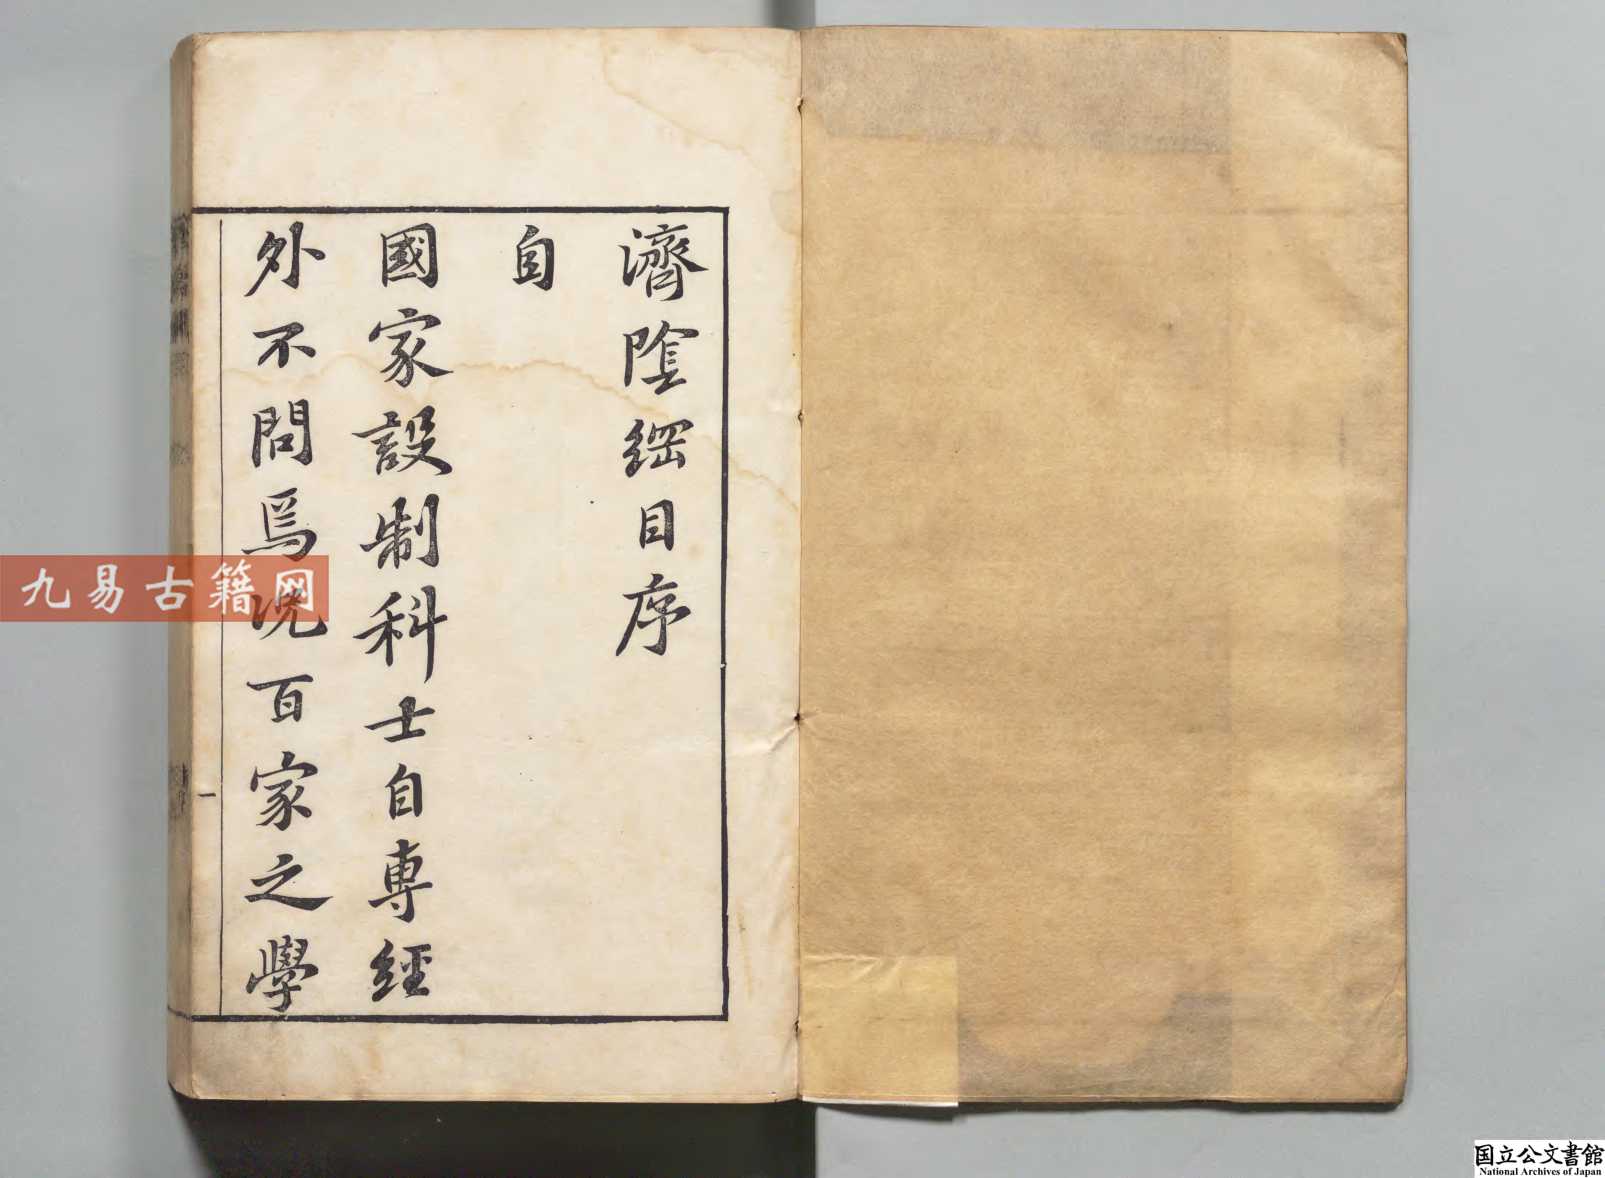 濟陰綱目序
自
國家設制科士自專經
外不問焉況百家之學
一
九易古籍网
国立公文書館
National Archives of Japan